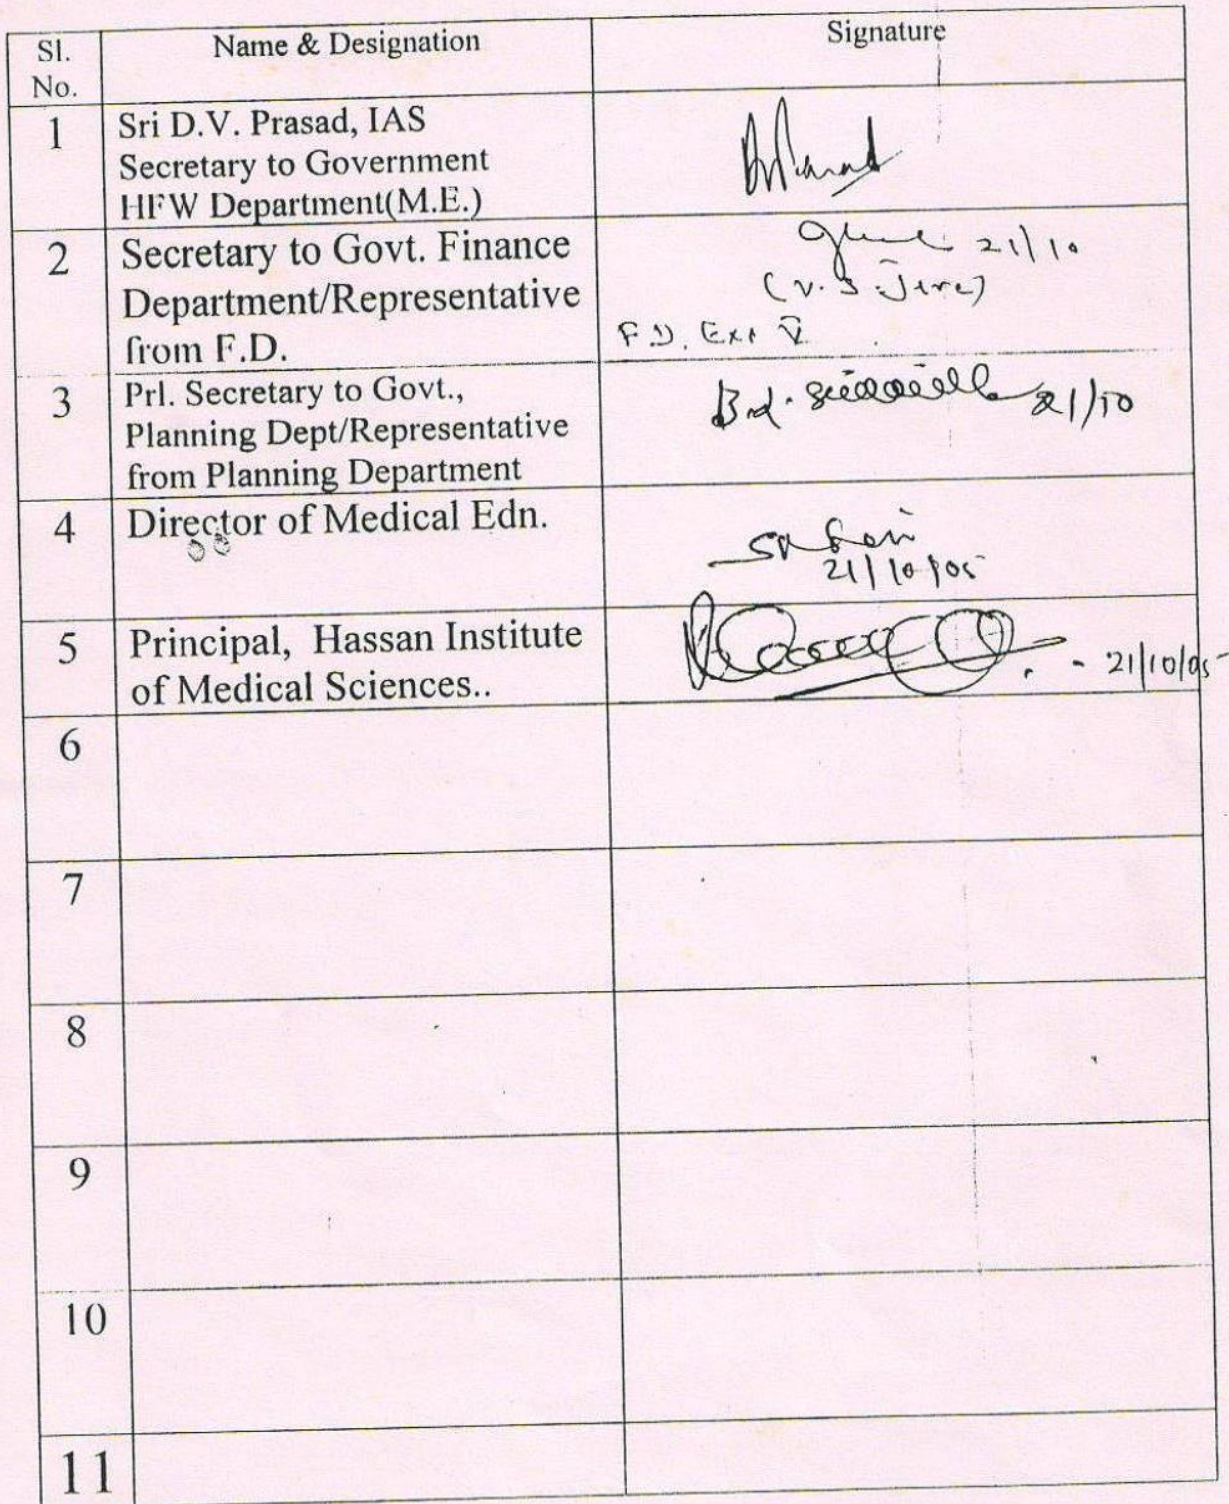 Sl.
No.
Name & Designation
Signature
1
Sri D.V. Prasad, IAS
Secretary to Government
HFW Department(M.E.)
2
Secretary to Govt. Finance
Department/Representative
from F.D.
21/10
(V.S. Jere)
F.D. Exp V
3
Prl. Secretary to Govt.,
Planning Dept/Representative
from Planning Department
21/10
4
Director of Medical Edn.
21/10/05
5
Principal, Hassan Institute
of Medical Sciences..
21/10/05
6
7
8
9
10
11